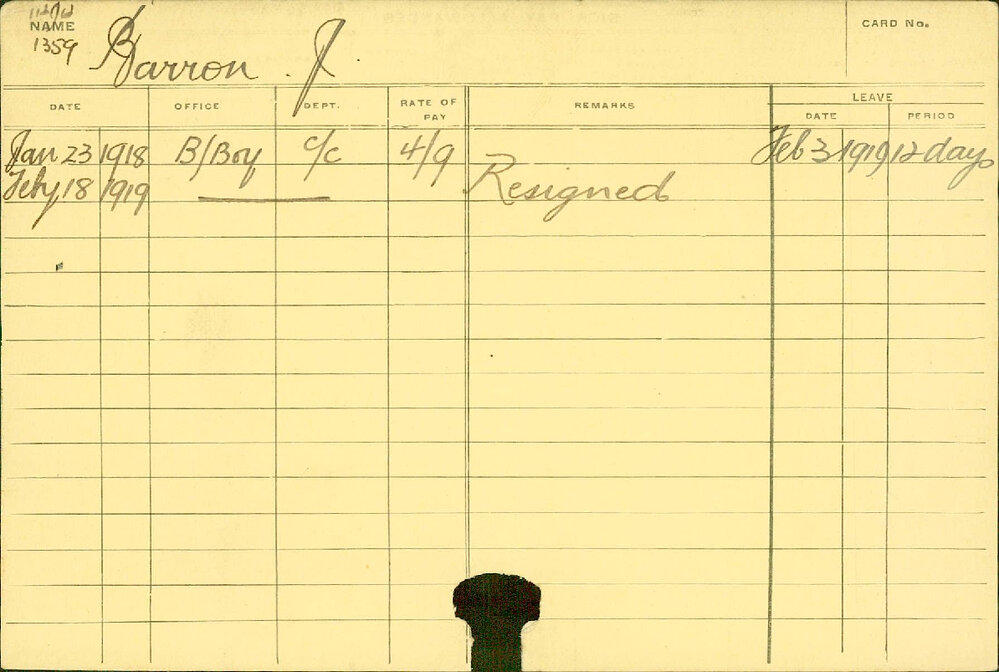 NAME
1359
Barron. J.
CARD No.
DATE OFFICE DEPT. RATE OF PAY REMARKS LEAVE
DATE PERIOD
Jan 23 1918 B/Boy C/C 4/9 Feb 3 1919 12 days
Feby 18 1919 Resigned